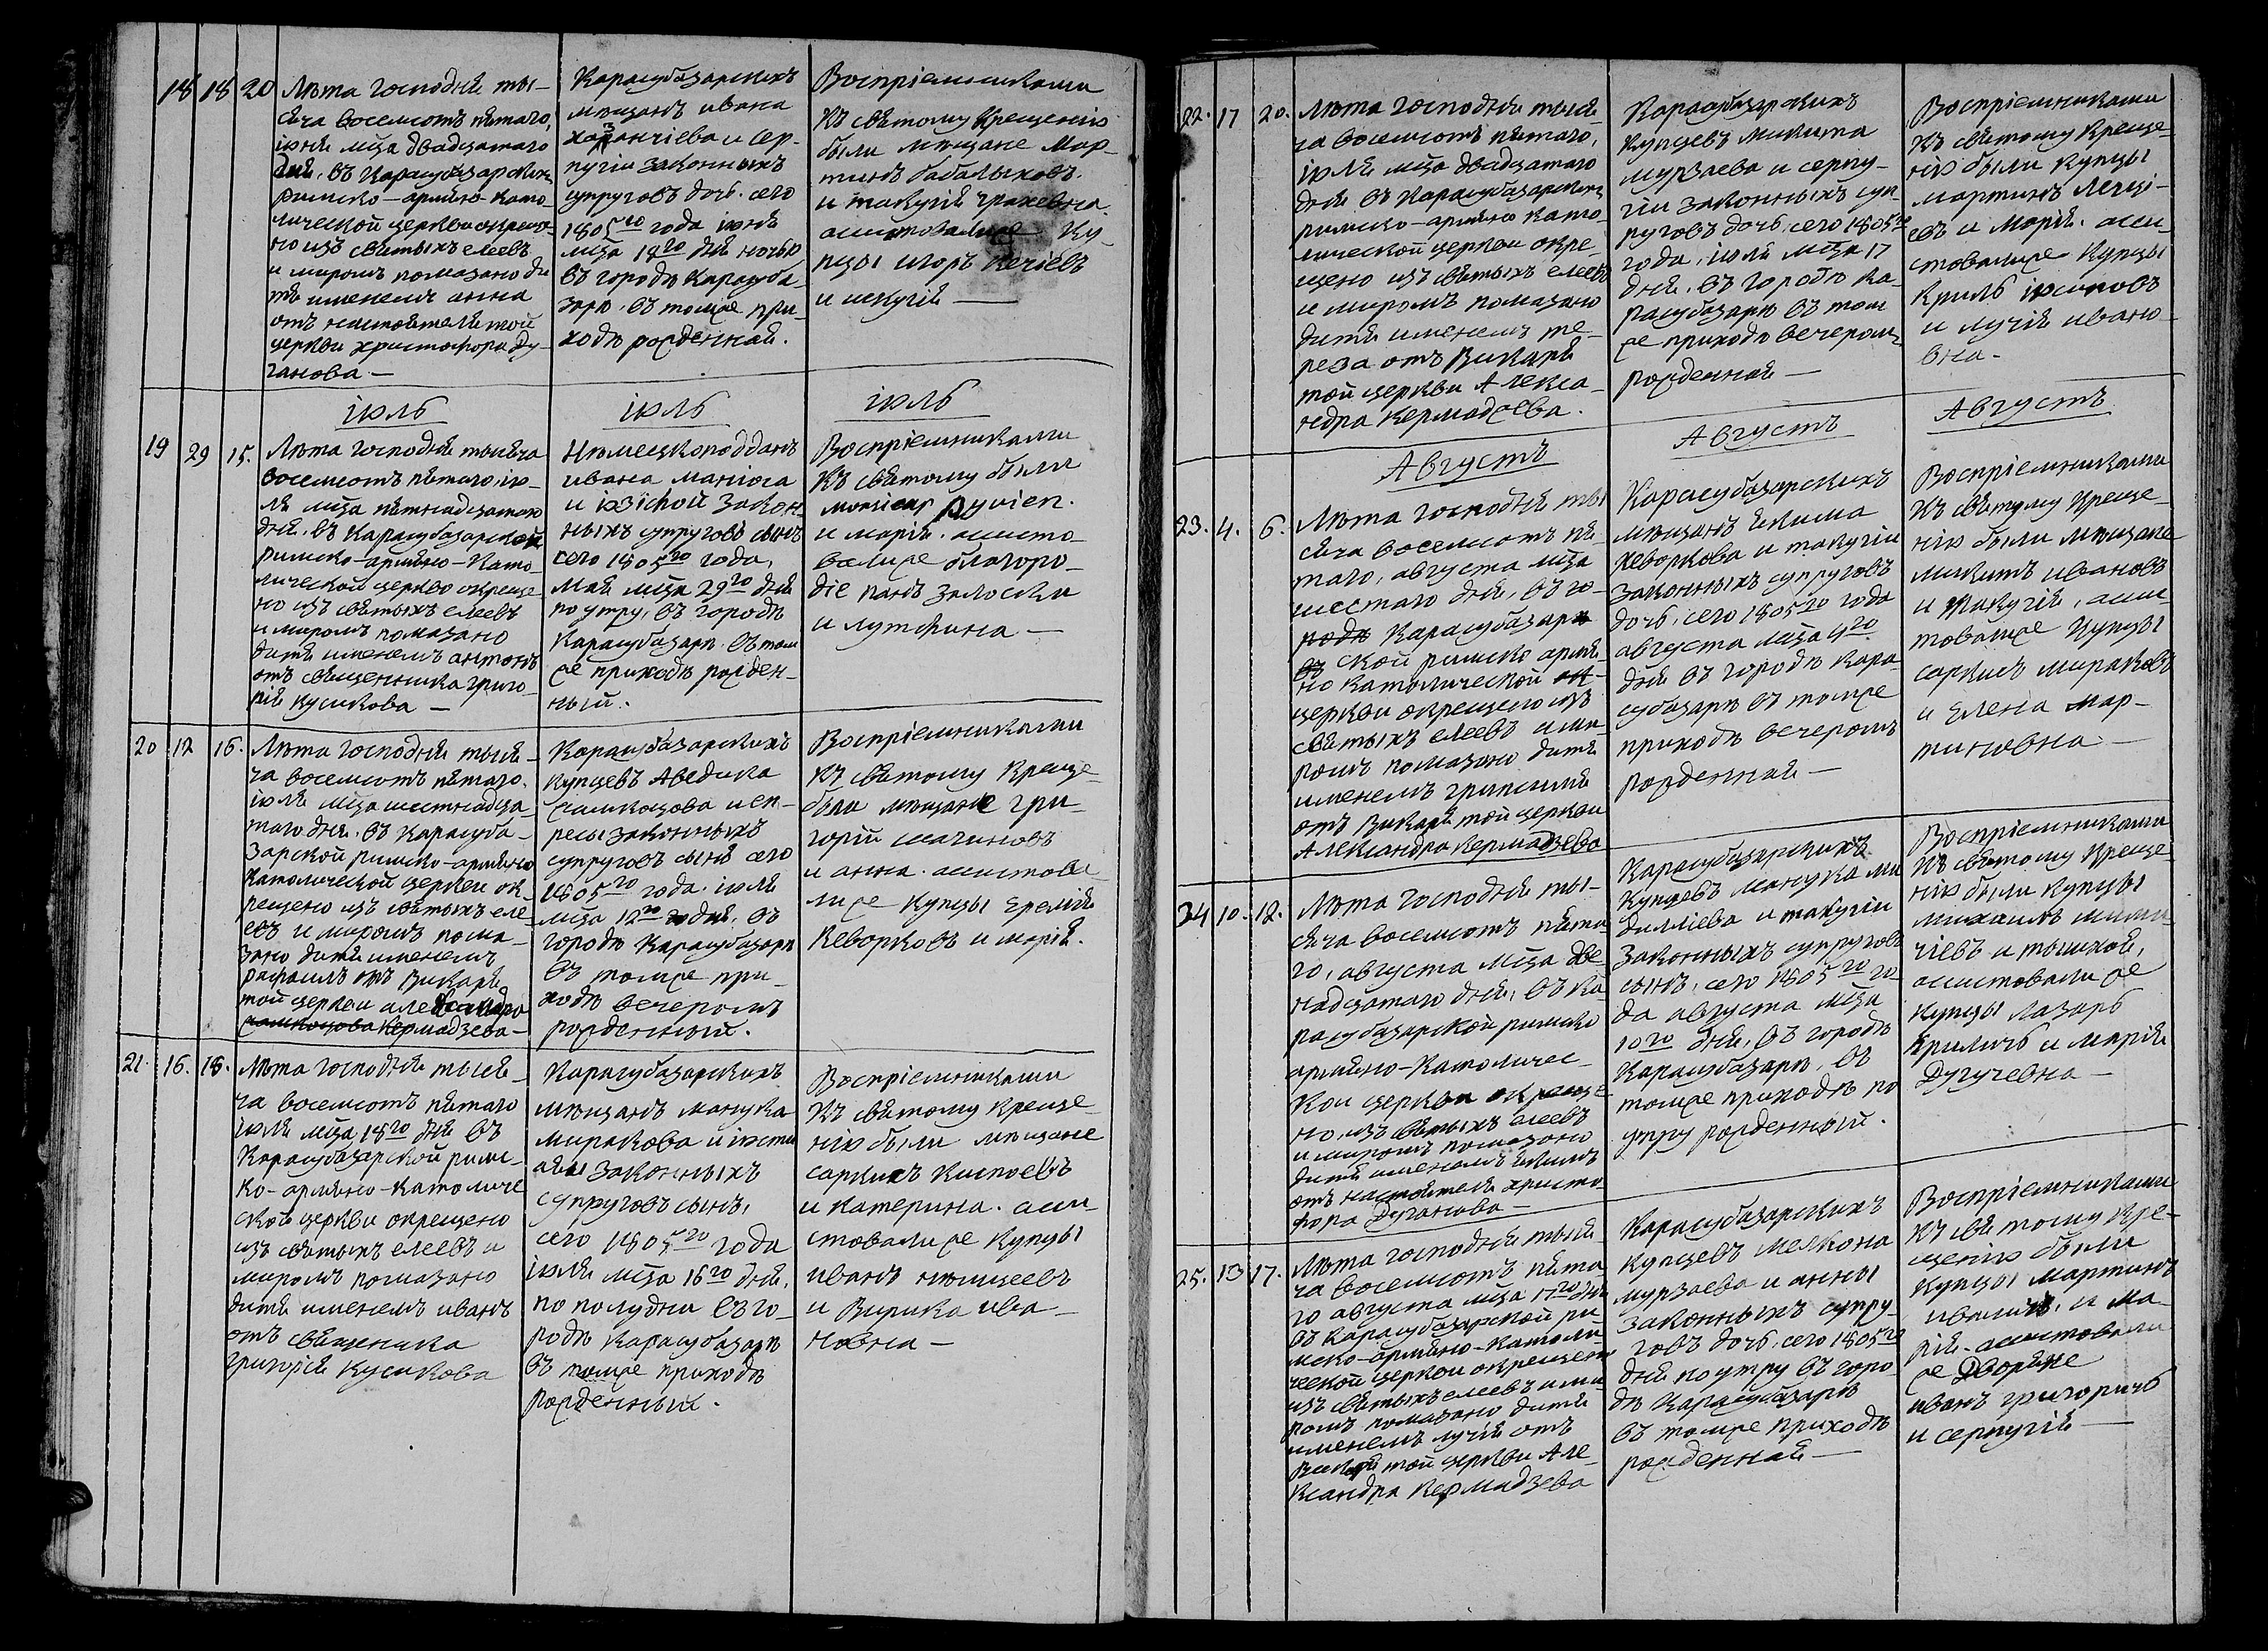 18 18 20
Лѣта господня ты-
сяча восемсотъ пятаго,
іюня мѣца двадцатаго
дня, въ Карасубазарской
римско-армяно-като-
лической церкви окреще-
но изъ святыхъ елеевъ
и миромъ помазано ди-
тя именемъ анна
отъ настоятеля той
церкви христофора Ду-
ганова —
Карасубазарскихъ
мѣщанъ ивана
и Сер-
пугіи законныхъ
супруговъ дочь. сего
1805го года іюня
мѣца 18го дня ночью
въ городѣ Карасуба-
зарѣ. въ томже при-
ходѣ рожденная.
Воспріемниками
къ святому Крещенію
были мѣщане Мар-
тинъ бабалыховъ.
и такугія
асистовалиже Ку-
пцы
и —
іюль
іюль
іюль
19 29 15.
Лѣта господня тысяча
восемсотъ пятаго, ію-
ля мѣца пятнадцатаго
дня, въ Карасубазарской
римско-армяно-като-
лической церкво окреще
но изъ святыхъ елеевъ
и миромъ помазано
дитя именемъ антонъ
отъ священника григо-
рія кусикова —
Нѣмецкоподданъ
ивана
и законн
ныхъ супруговъ сынъ
сего 1805го года,
мая мѣца 29го дня
по утру, въ городѣ
Карасубазарѣ. въ том
же приходѣ рожден-
ный.
Воспріемниками
къ святому были
и марія. асисто-
валиже благоро-
діе панъ
и лутфина —
20 12 16.
Лѣта господня тыся-
ча восемсотъ пятаго.
іюля мѣца шестнадца-
таго дня. въ Карасуба-
зарской римско-армяно
католической церкви ок
рещено изъ святыхъ еле-
евъ и миромъ пома-
зано дитя именемъ
рафаилъ отъ Викарія
той церкви александра
Кермадзева —
Карасубазарскихъ
купцевъ Аведика
и еп-
ресы законныхъ
супруговъ сынъ сего
1805го года. іюля
мѣца 12го дня. въ
городѣ Карасубазарѣ
въ томже при-
ходѣ вечеромъ
рожденный.
Воспріемниками
къ святому Креще-
были мѣщане гри-
горій шагиновъ
и анна. асистова
лиже купцы Еремія
Кеворковъ и марія.
21. 16. 18.
Лѣта господня тыся-
ча восемсотъ пятаго
іюля мѣца 18го дня въ
Карасубазарской римс-
ко-армяно-католиче
ской церкви окрещено
изъ святыхъ елеевъ и
миромъ помазано
дитя именемъ иванъ
отъ священика
григорія Кусикова
Карасубазарскихъ
мѣщанъ манука
миракова и
законныхъ
супруговъ сынъ,
сего 1805го года
іюля мѣца 16го дня,
по полудни въ го-
родѣ Карасубазарѣ
въ томже приходѣ
рожденный.
Воспріемниками
къ святому Креще-
нію были мѣщане
саркизъ
и катерина. аси-
стовалиже купцы
иванъ
и Вирика ива-
новна —
22. 17 20.
Лѣта господня тыся-
ча восемсотъ пятаго,
іюля мѣца двадцатаго
дня въ Карасубазарской
римско-армяно като-
лической церкви окре-
щено изъ святыхъ елеевъ
и миромъ помазано
дитя именемъ те-
реза отъ Викарія
той церкви Алекса-
ндра Кермадзева.
Карасубазарскихъ
купцевъ микита
мурзаева и серпу-
гіи законныхъ суп-
руговъ дочь, сего 1805го
года, іюля мѣца 17
дня. въ городѣ Ка-
расубазарѣ въ том
же приходѣ вечеромъ
рожденная —
Воспріемниками
къ святому креще-
нію были купцы
мартинъ
евъ и марія. аси-
стовалиже купцы
криль
и лучія ивано-
вна —
Августъ
Августъ
Августъ
23. 4. 6.
Лѣта господня ты
сяча восемсотъ пя-
таго, августа мѣца
шестаго дня, въ го-
родѣ Карасубазар
ской римско армя-
но католической
церкви окрещено изъ
святыхъ елеевъ и ми-
ромъ помазано дитя
именемъ грипсимія
отъ Викарія той церкви
Александра Кермадзева
Карасубазарскихъ
мѣщанъ якима
кеворкова и такугіи
законныхъ супруговъ
дочь, сего 1805го года
августа мѣца 4го
дня въ городѣ Кара-
субазарѣ въ томже
приходѣ вечеромъ
рожденная —
Воспріемниками
къ святому креще-
нію были мѣщане
микитъ ивановъ
и Такугія, асис-
товалиже купцы
саркисъ мираковъ
и Елена мар-
тиновна —
24 10. 12.
Лѣта господня ты-
сяча восемсотъ пята-
го, августа мѣца две-
надцатаго дня, въ Ка-
расубазарской римско
армяно-католичес-
кои церкви окреще-
но, изъ святыхъ елеевъ
и миромъ помазано
дитя именемъ якимъ
отъ настоятеля христо-
фора Дуганова —
Карасубазарскихъ
купцевъ манука ми
и такугіи
законныхъ супруговъ
сынъ, сего 1805го го-
да августа мѣца
10го дня, въ городѣ
Карасубазарѣ, въ
томже приходѣ по
утру рожденный.
Воспріемниками
къ святому креще-
нію были купцы
михаилъ
асистовалиже
купцы лазарь
криличь и марія
Дугучевна —
25. 13 17.
Лѣта господня тыся-
ча восемсотъ пята
го августа мѣца 17го дня
въ карасубазарской ри-
мско-армяно-католи-
ческой церкви окрещено
изъ святыхъ елеевъ и ми-
ромъ помазано дитя
именемъ лучія отъ
Викарія той церкви Але-
ксандра Кермадзева
Карасубазарскихъ
купцевъ мелкона
мурзаева и анны
законныхъ супру-
говъ дочь, сего 1805го
дня по утру въ горо-
дѣ Карасубазарѣ
въ томже приходѣ
рожденная —
Воспріемниками
къ святому кре-
щенію были
купцы мартинъ
иваничь, и ма-
рія. асистовали
же Дворяне
иванъ григоричь
и серпугія —